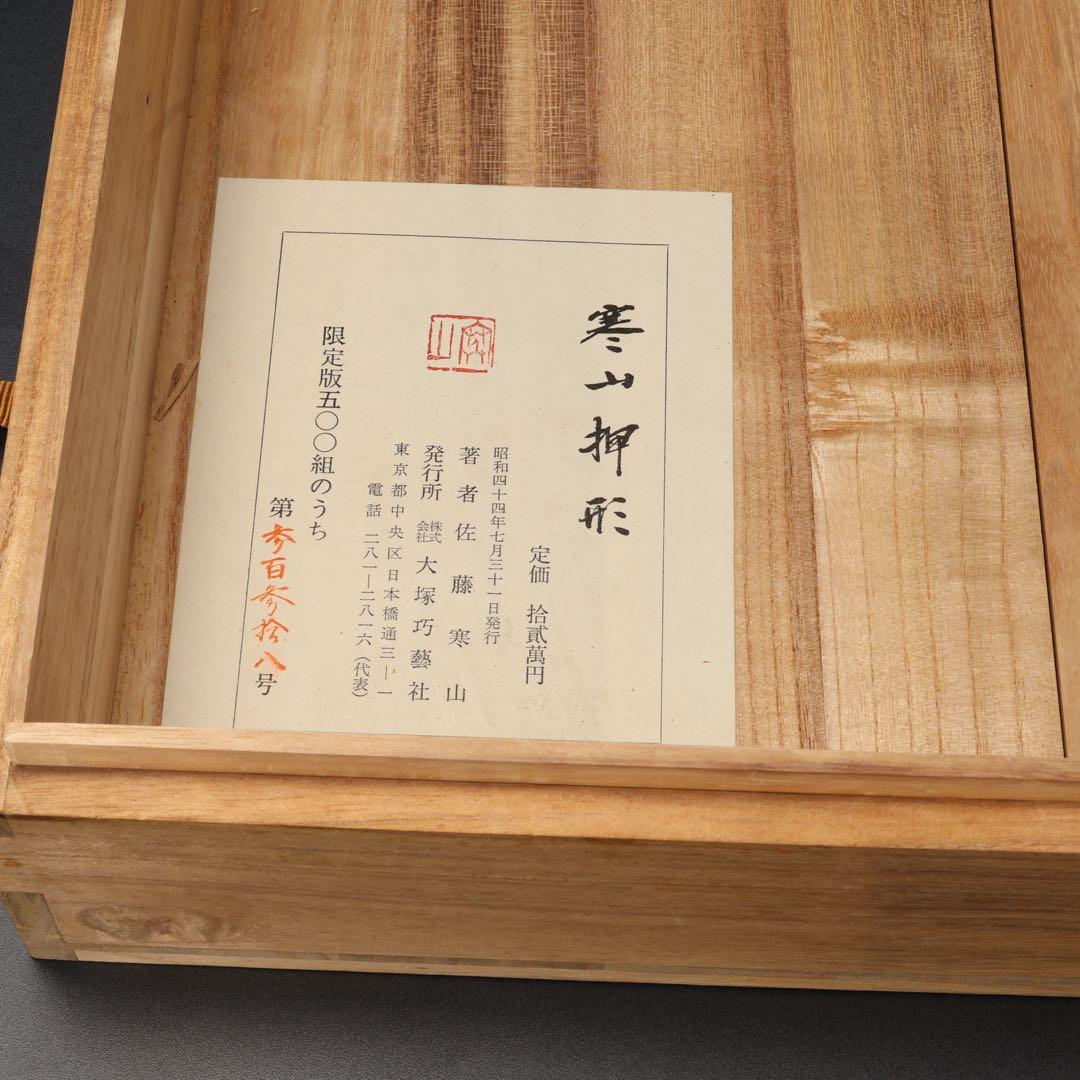 寒山押形
定価 拾貳萬円
昭和四十四年七月三十一日発行
著者 佐藤寒山
発行所 株式会社 大塚巧藝社
東京都中央区日本橋通三―一
電話 二八一―二八一六(代表)
限定版五〇〇組のうち
第参百参拾八号
寒山